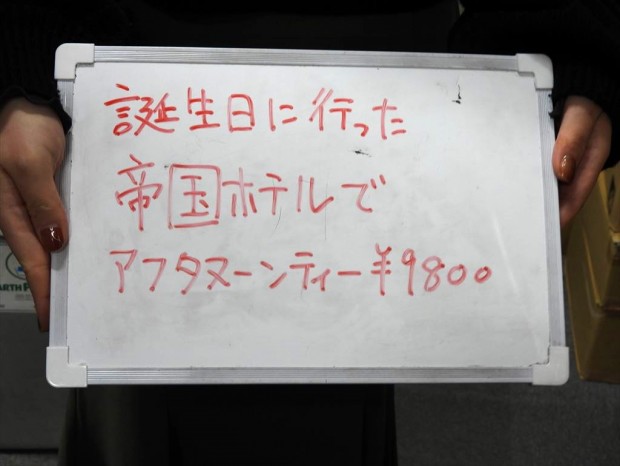 誕生日に行った
帝国ホテルで
アフタヌーンティー¥9800